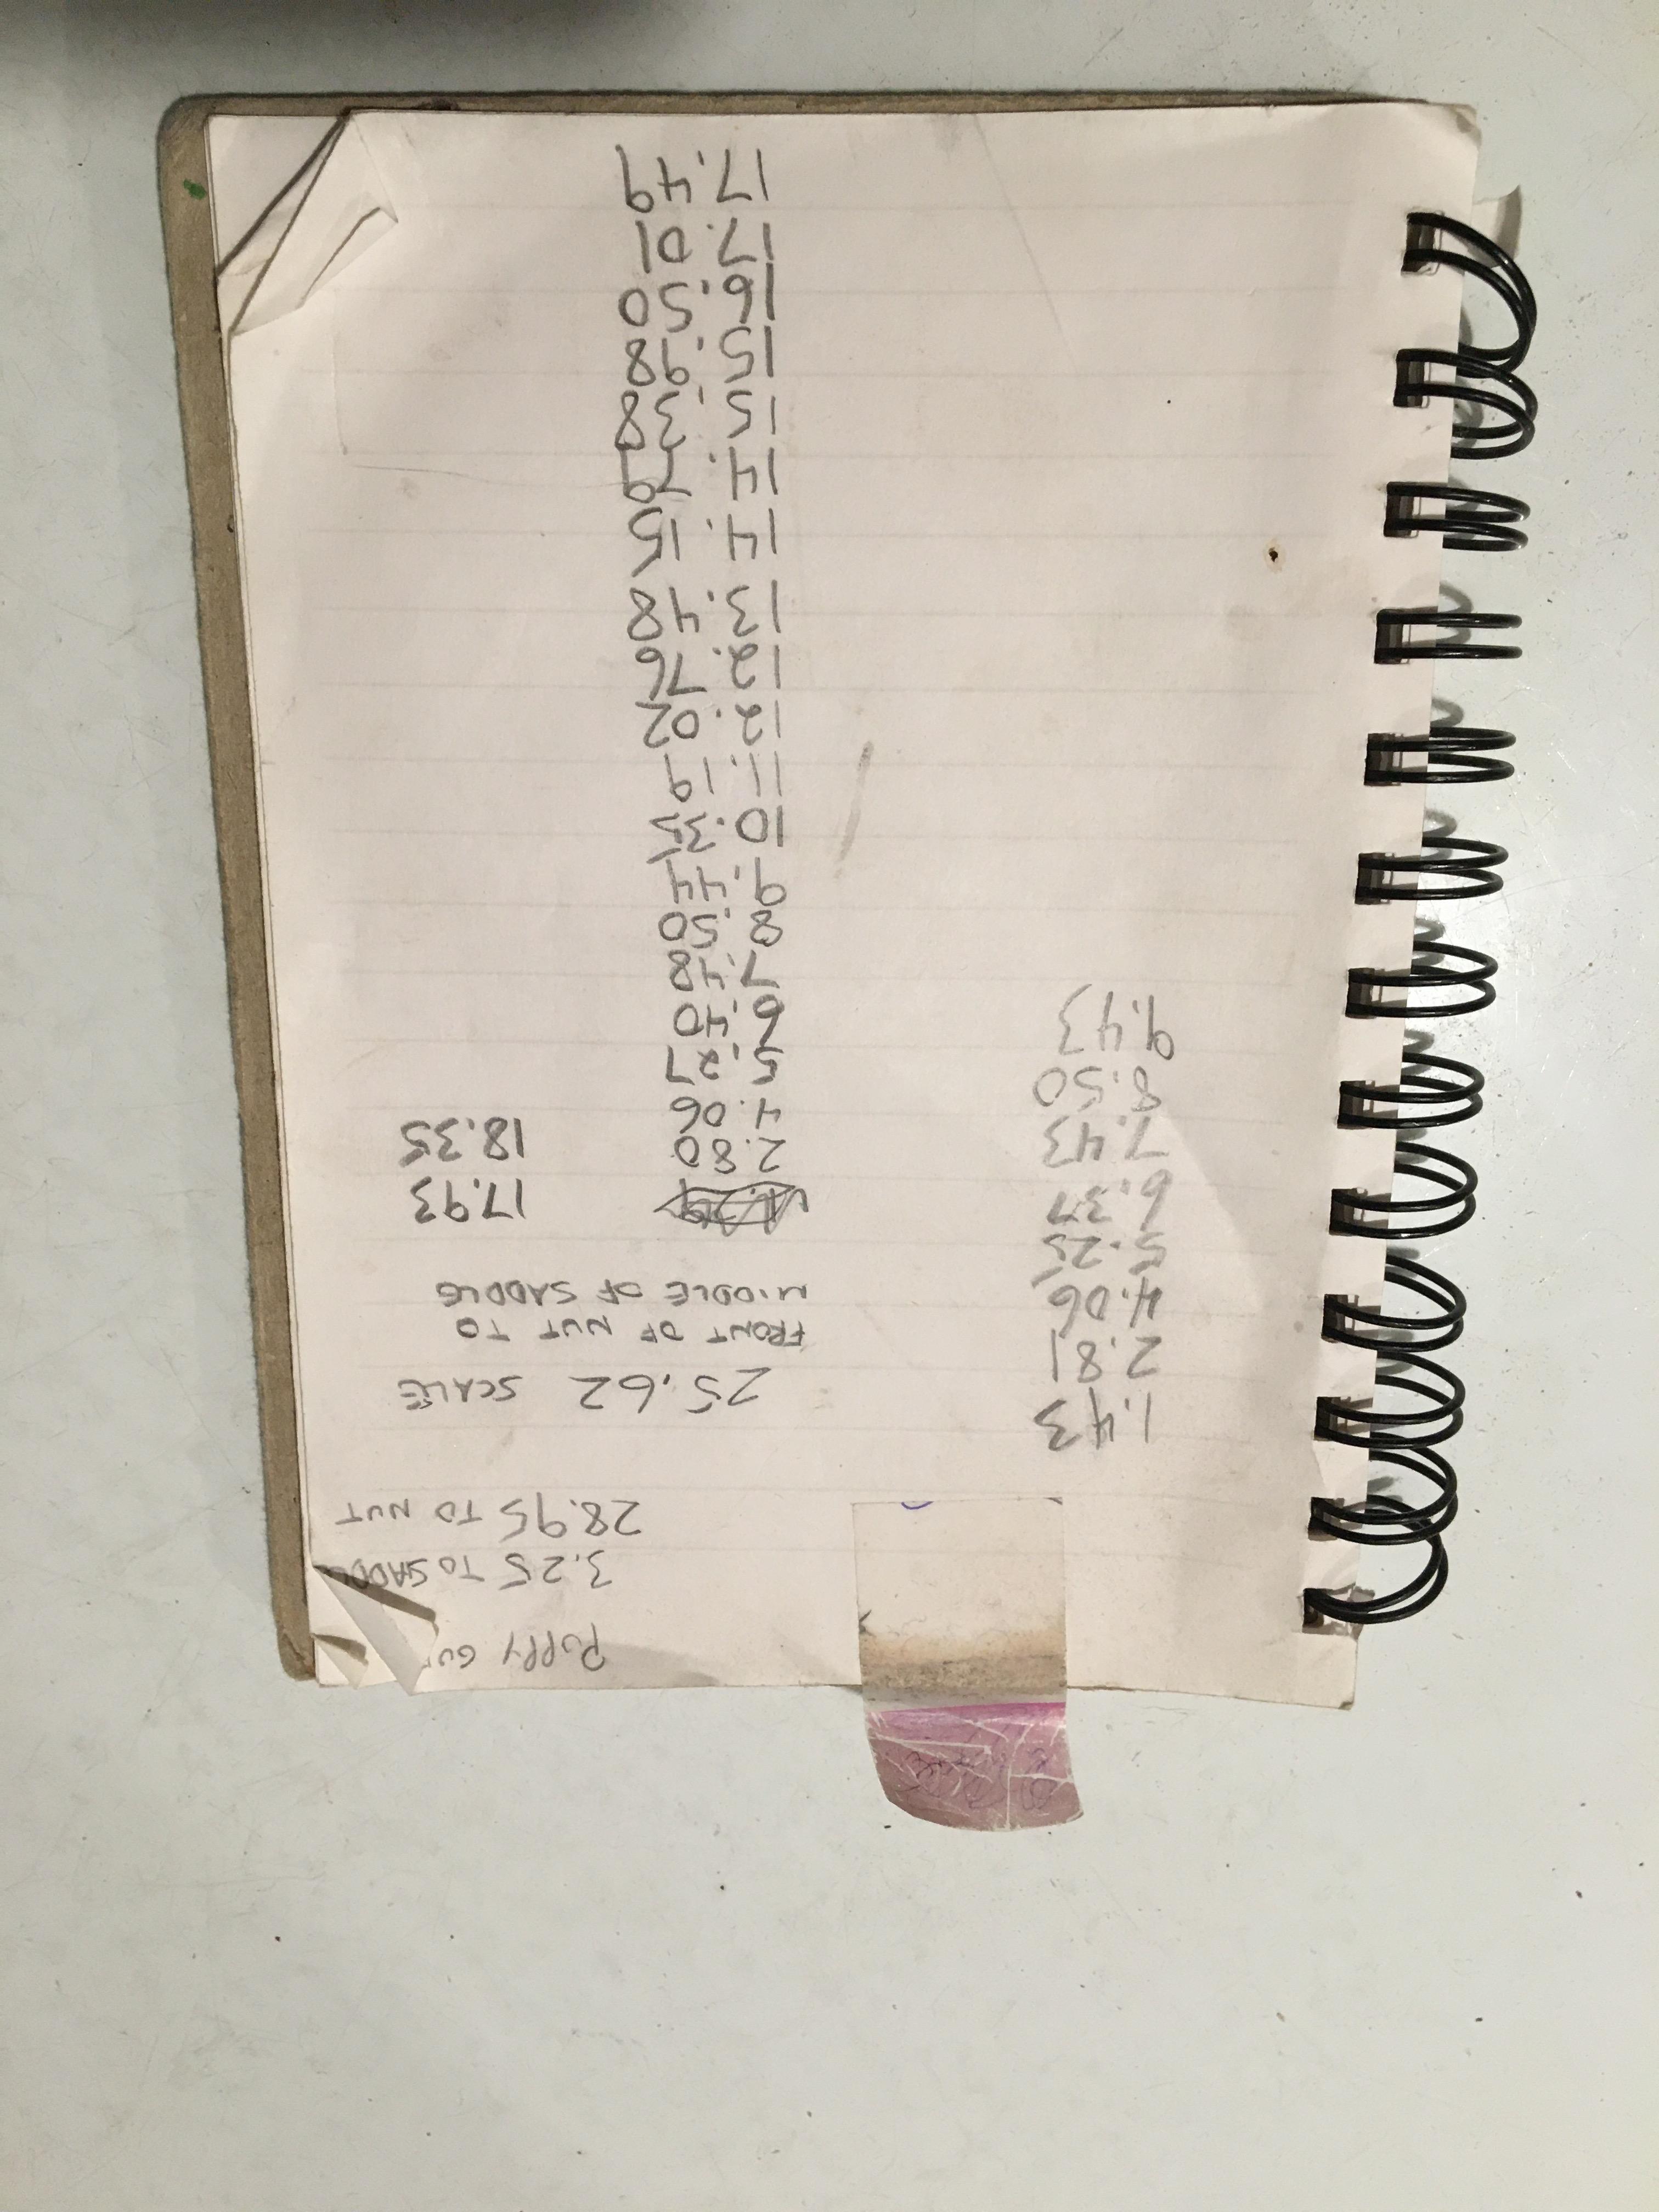 3.25 TO SADDL
28.95 TO NUT
1.43
2.81
4.06
5.25
6.37
7.43
8.50
9.43
25.62 SCALE
FRONT OF NUT TO
MIDDLE OF SADDLE
2.80
4.06
5.27
6.40
7.48
8.50
9.44
10.35
11.19
12.02
12.76
13.48
14.15
14.79
15.38
15.98
16.50
17.01
17.49
17.93
18.35